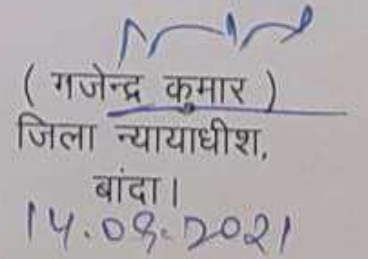 ( गजेन्द्र कुमार )
जिला न्यायाधीश,
बांदा।
14.09.2021